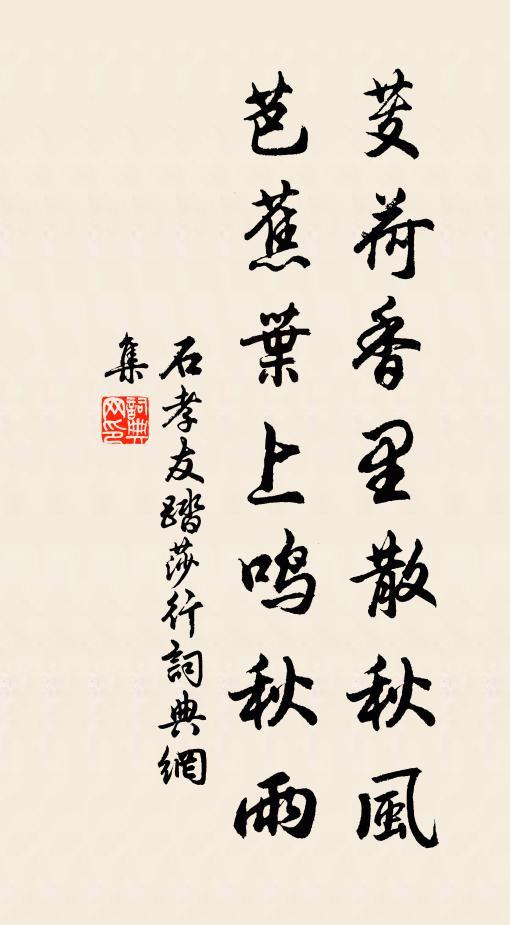 芰荷香里散秋風
芭蕉葉上鸣秋雨
石孝友踏莎行詞典網
集
詞典
网印